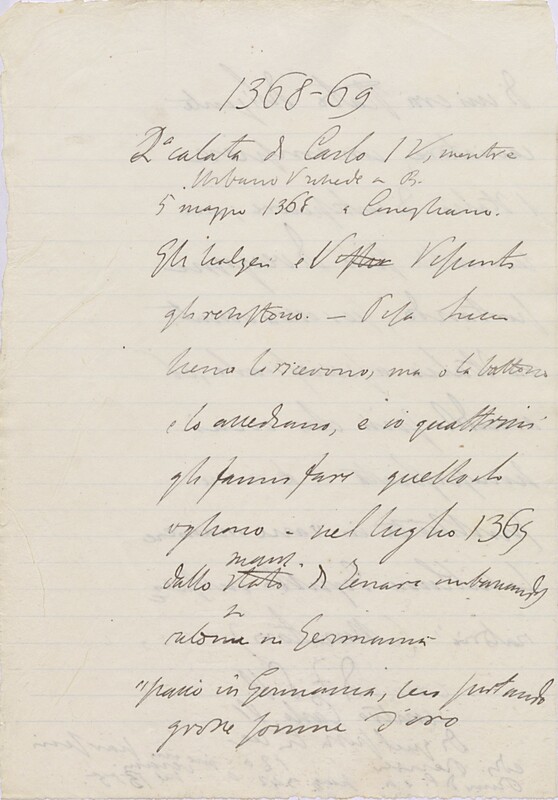 1368-69
2ª calata di Carlo IV, mentre
Urbano V risiede a R.
5 maggio 1368 a Conegliano.
Gli Scaligeri e Visconti
gli resistono. — Pisa Lucca
Siena lo ricevono, ma o lo battono
o lo assediano, e coi quattrini
gli fanno fare quello che
vogliono - nel luglio 1369
dallo stato di denaro
ritorna in Germania
"passò in Germania, seco portando
grosse somme d'oro